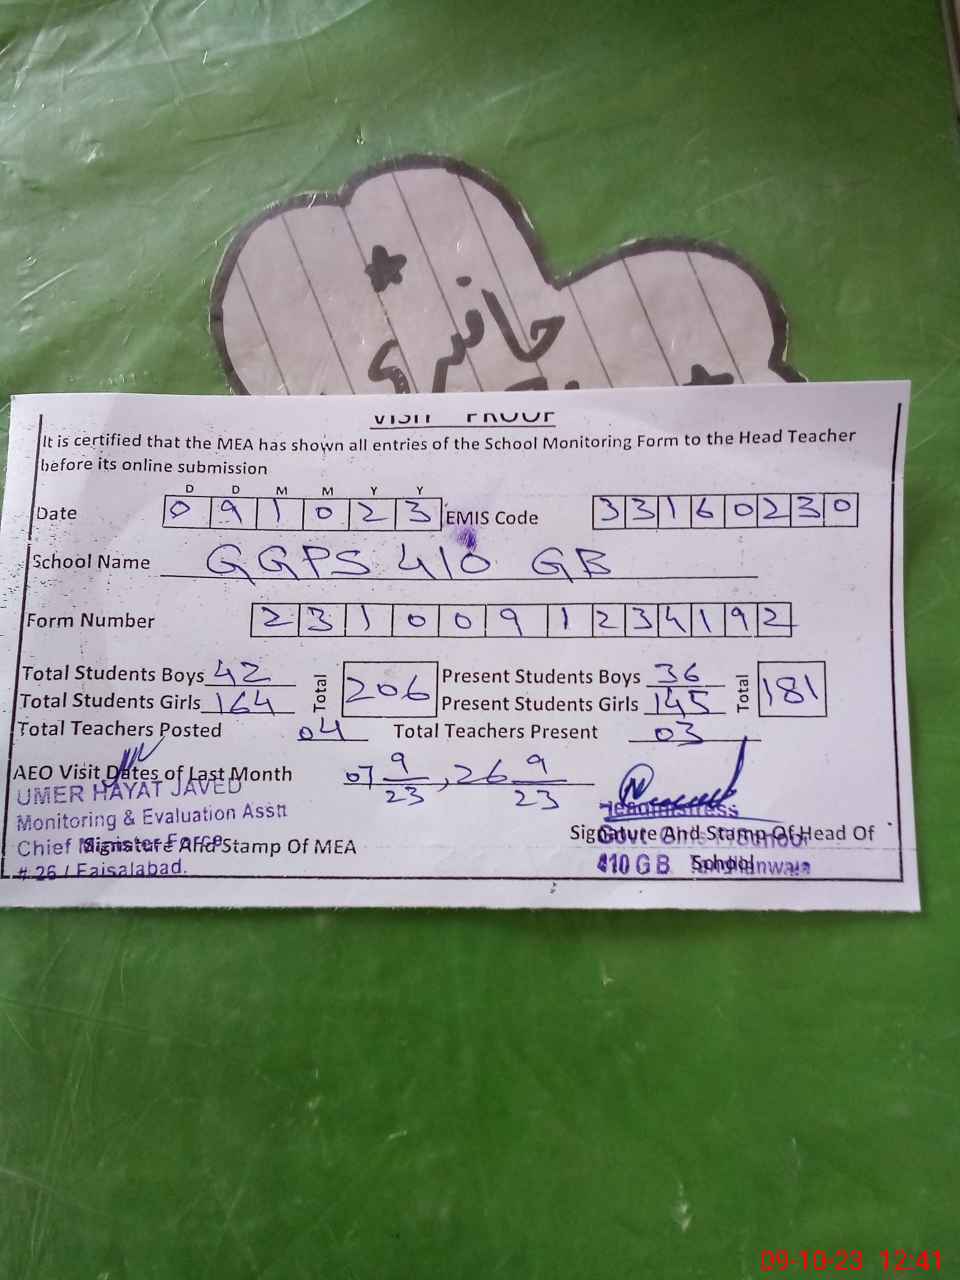 حاضری
VISIT PROOF
It is certified that the MEA has shown all entries of the School Monitoring Form to the Head Teacher
before its online submission
D D M M Y Y
Date 0 9 1 0 2 3 EMIS Code 3 3 1 6 0 2 3 0
School Name GGPS 410 GB
Form Number 2 3 1 0 0 9 1 2 3 4 1 9 2
Total Students Boys 42 Total 206 Present Students Boys 36 Total 181
Total Students Girls 164 Present Students Girls 145
Total Teachers Posted 04 Total Teachers Present 03
AEO Visit Dates of Last Month 07 9/23, 26 9/23
UMER HAYAT JAVED
Monitoring & Evaluation Asstt
Chief Minister Force
Signature And Stamp Of MEA
# 26 / Faisalabad.
Headmistress
Signature And Stamp Of Head Of
School
Govt
410 GB
09-10-23 12:41